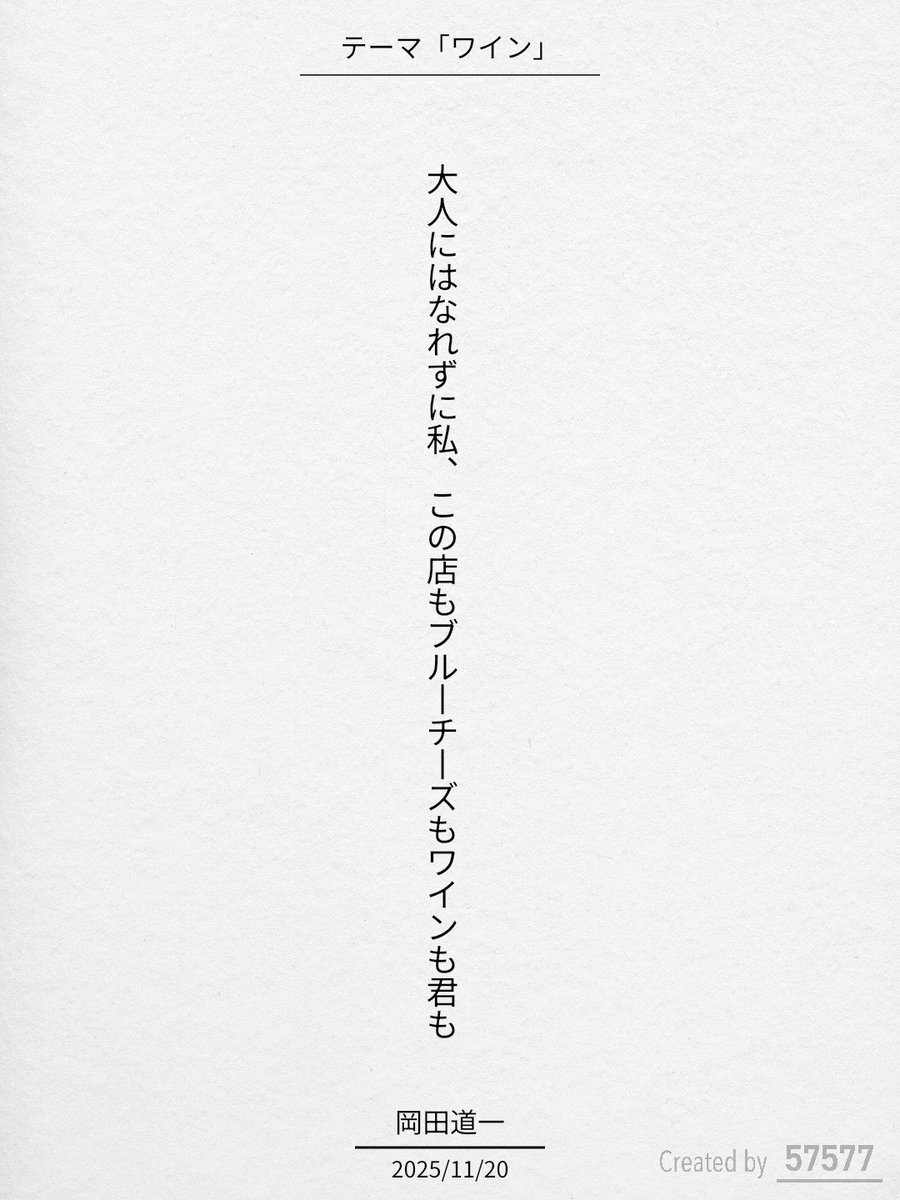 テーマ「ワイン」
大人にはなれずに私、この店もブルーチーズもワインも君も
岡田道一
2025/11/20
Created by 57577